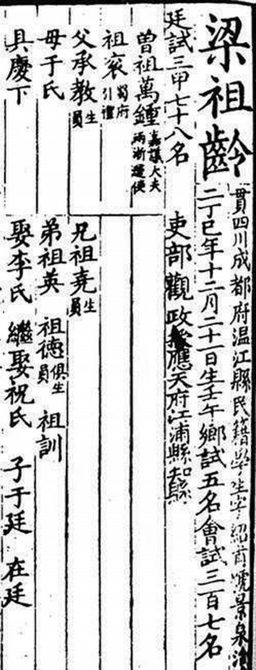 梁祖齡
貫四川成都府温江縣民籍學生字紹甫號景泉治
二丁巳年十二月二十一日生壬午鄉試五名會試三百七名
廷試三甲七十八名
吏部觀政授應天府江浦縣知縣
曾祖萬鍾嘉議大夫兩淅運使
祖袞蜀府引禮
父承教生員
兄祖堯生員
母于氏
弟祖英 祖德俱生員 祖訓
具慶下
娶李氏 繼娶祝氏 子于廷 在廷